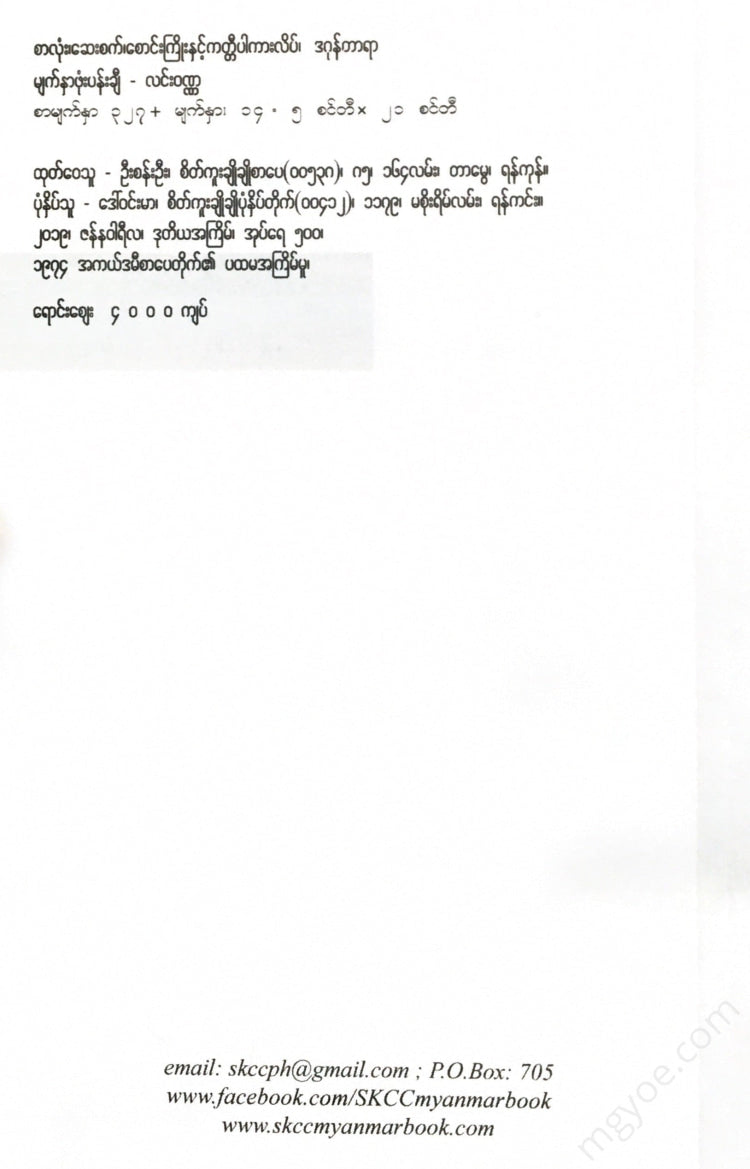 စာလုံး၊ဆေးစက်၊စောင်းကြိုးနှင့်ကတ္တီပါကားလိပ်၊ ဒဂုန်တာရာ
မျက်နှာဖုံးပန်းချီ - လင်းဝဏ္ဏ
စာမျက်နှာ ၃၂၇ + မျက်နှာ၊ ၁၄ . ၅ စင်တီ × ၂၁ စင်တီ
ထုတ်ဝေသူ - ဦးစန်းဦး၊ စိတ်ကူးချိုချိုစာပေ(၀၀၅၃၈)၊ ဂ၅၊ ၁၆၄လမ်း၊ တာမွေ၊ ရန်ကုန်။
ပုံနှိပ်သူ - ဒေါ်ဝင်းမာ၊ စိတ်ကူးချိုချိုပုံနှိပ်တိုက်(၀၀၄၁၂)၊ ၁၁၇၉၊ မစိုးရိမ်လမ်း၊ ရန်ကင်း။
၂၀၁၉၊ ဇန်နဝါရီလ၊ ဒုတိယအကြိမ်၊ အုပ်ရေ ၅၀၀၊
၁၉၇၄ အကယ်ဒမီစာပေတိုက်၏ ပထမအကြိမ်မူ၊
ရောင်းဈေး ၄ ၀ ၀ ၀ ကျပ်
email: skccph@gmail.com ; P.O.Box: 705
www.facebook.com/SKCCmyanmarbook
www.skccmyanmarbook.com
mgyoe.com